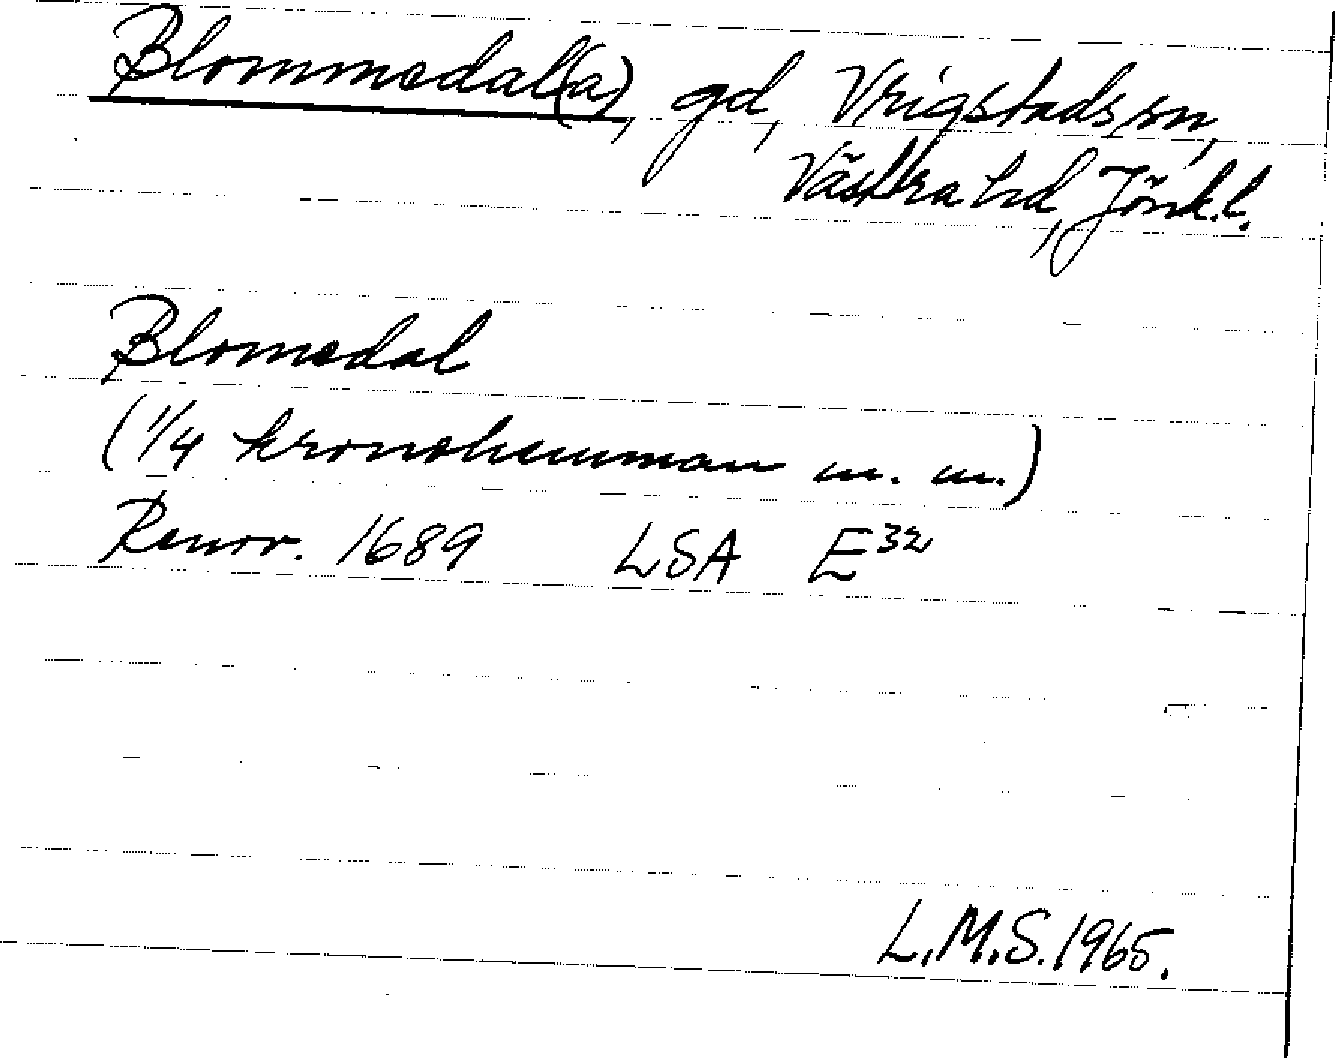 Blommedal(a), gd, Vrigstads sn,
Västra hd, Jönk.l.
Blomedal
(1/4 kronohemman m. m.)
Renov. 1689 LSA E³²
L.M.S. 1965.